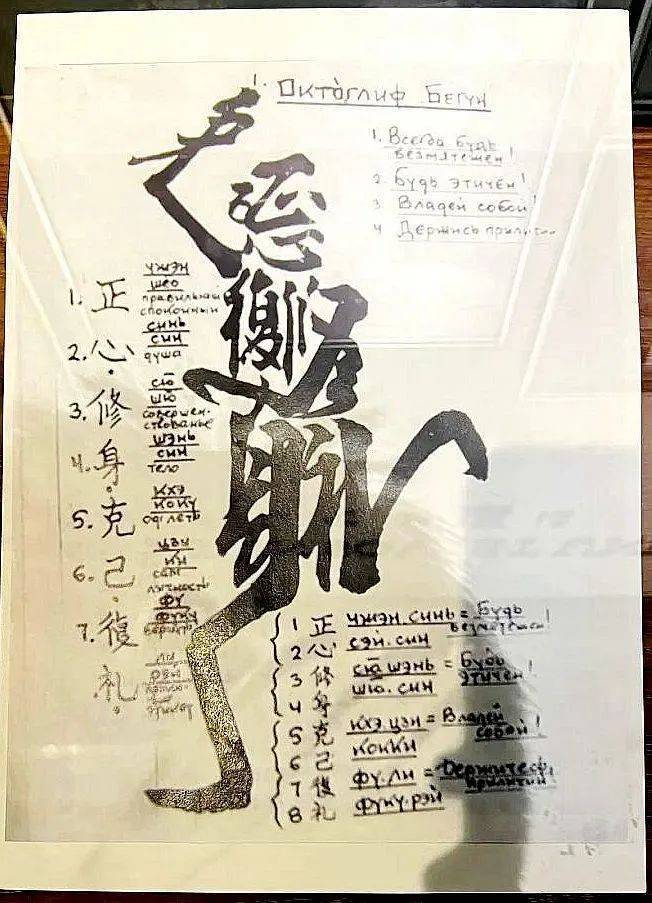 1. Октоглиф Бегун
1. Всегда будь
безмятежен!
2. Будь этичен!
3 Владей собой!
4 Держись
1. 正 чжэн
шёо
правильный
спокойный
2. 心 синь
син
душа
3. 修 сю
шю
совершен-
ствованье
4. 身 шэнь
син
тело
5. 克 кхэ
коку
одолеть
6. 己 цзи
ки
сам
личность
7. 復 фу
фуку
礼 ли
рэй
этикет
1 正 чжэн.синь = Будь
безмятежен!
2 心 сэй.син
3 修 сю.шэнь = Будь
этичен!
4 身 шю.син
5 克 кхэ.цзи = Владей
собой!
6 己 кокки
7 復 фу.ли = Держитесь
приличий
8 礼 фуку.рэй